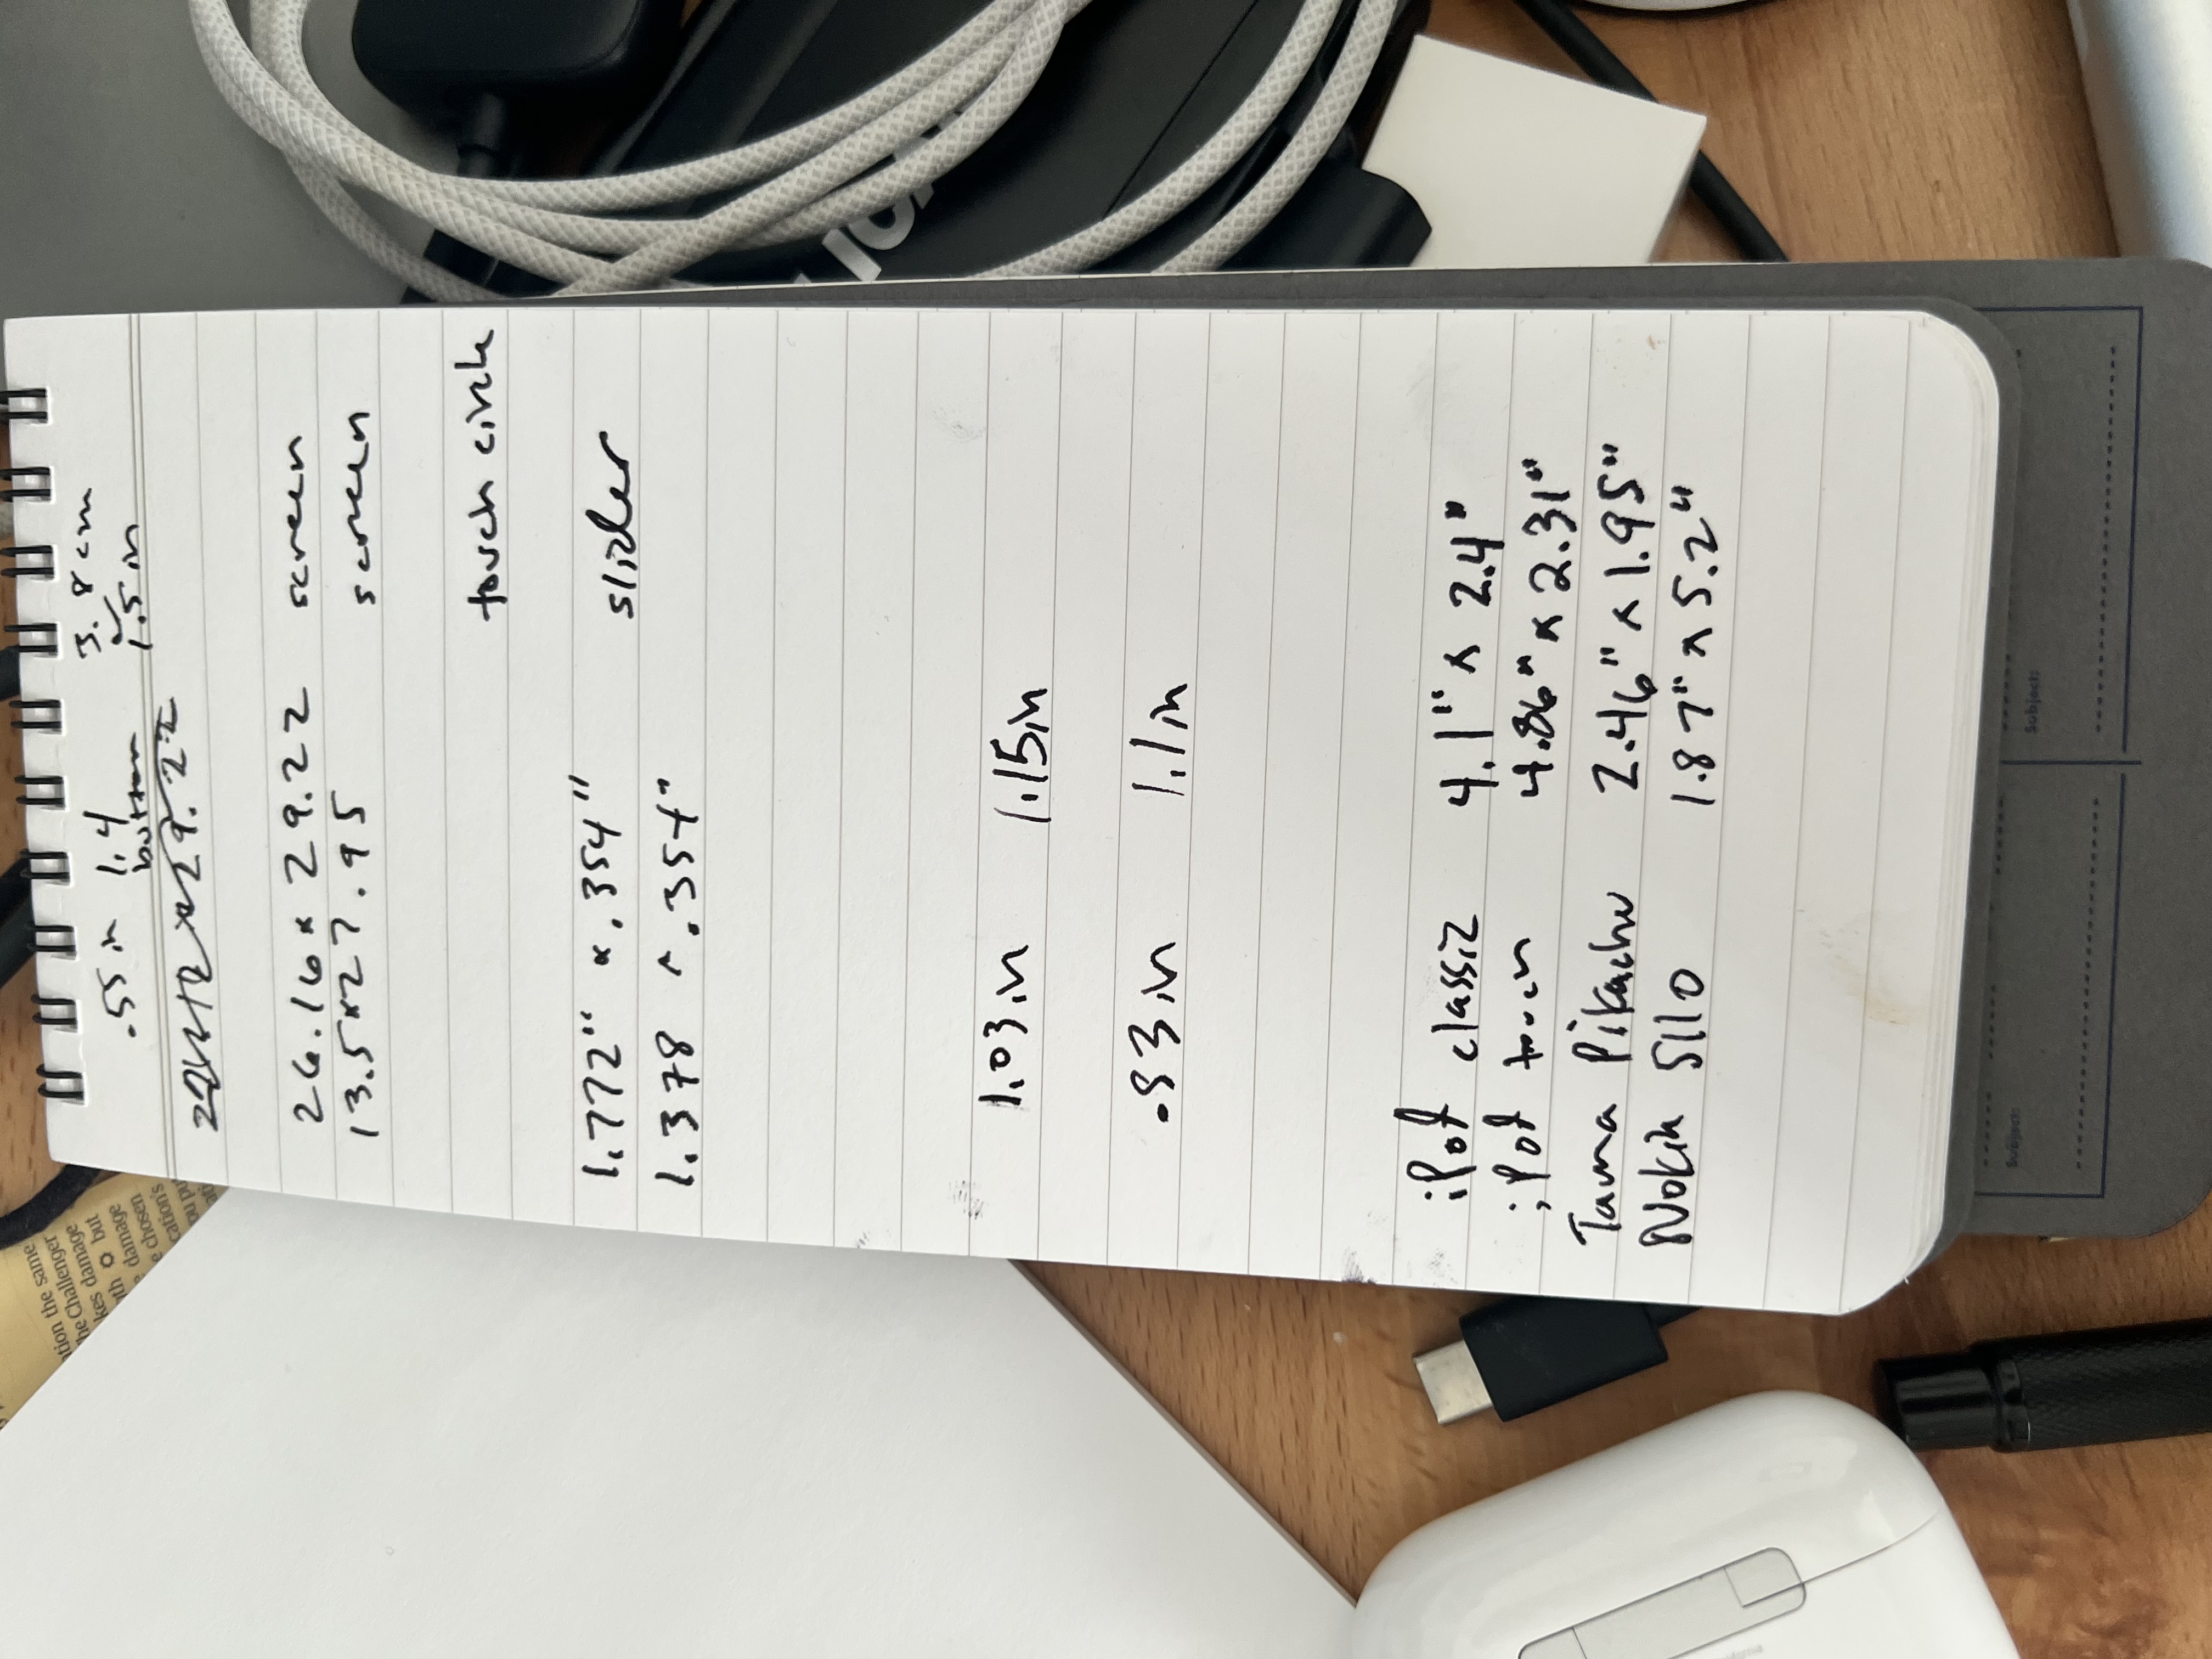 .55 in 1.4 3.8 cm
button 1.5 in
26.16 x 29.22 screen
13.5 x 27.95 screen
touch circle
1.772" x .354" slider
1.378 x .354"
1.03 in 1.15 in
.93 in 1.1 in
ipod classic 4.1" x 2.4"
ipod touch 4.86" x 2.31"
Tama Pikachu 2.46" x 1.95"
Nokia 5110 1.87" x 5.2"
Subject:
Subject: